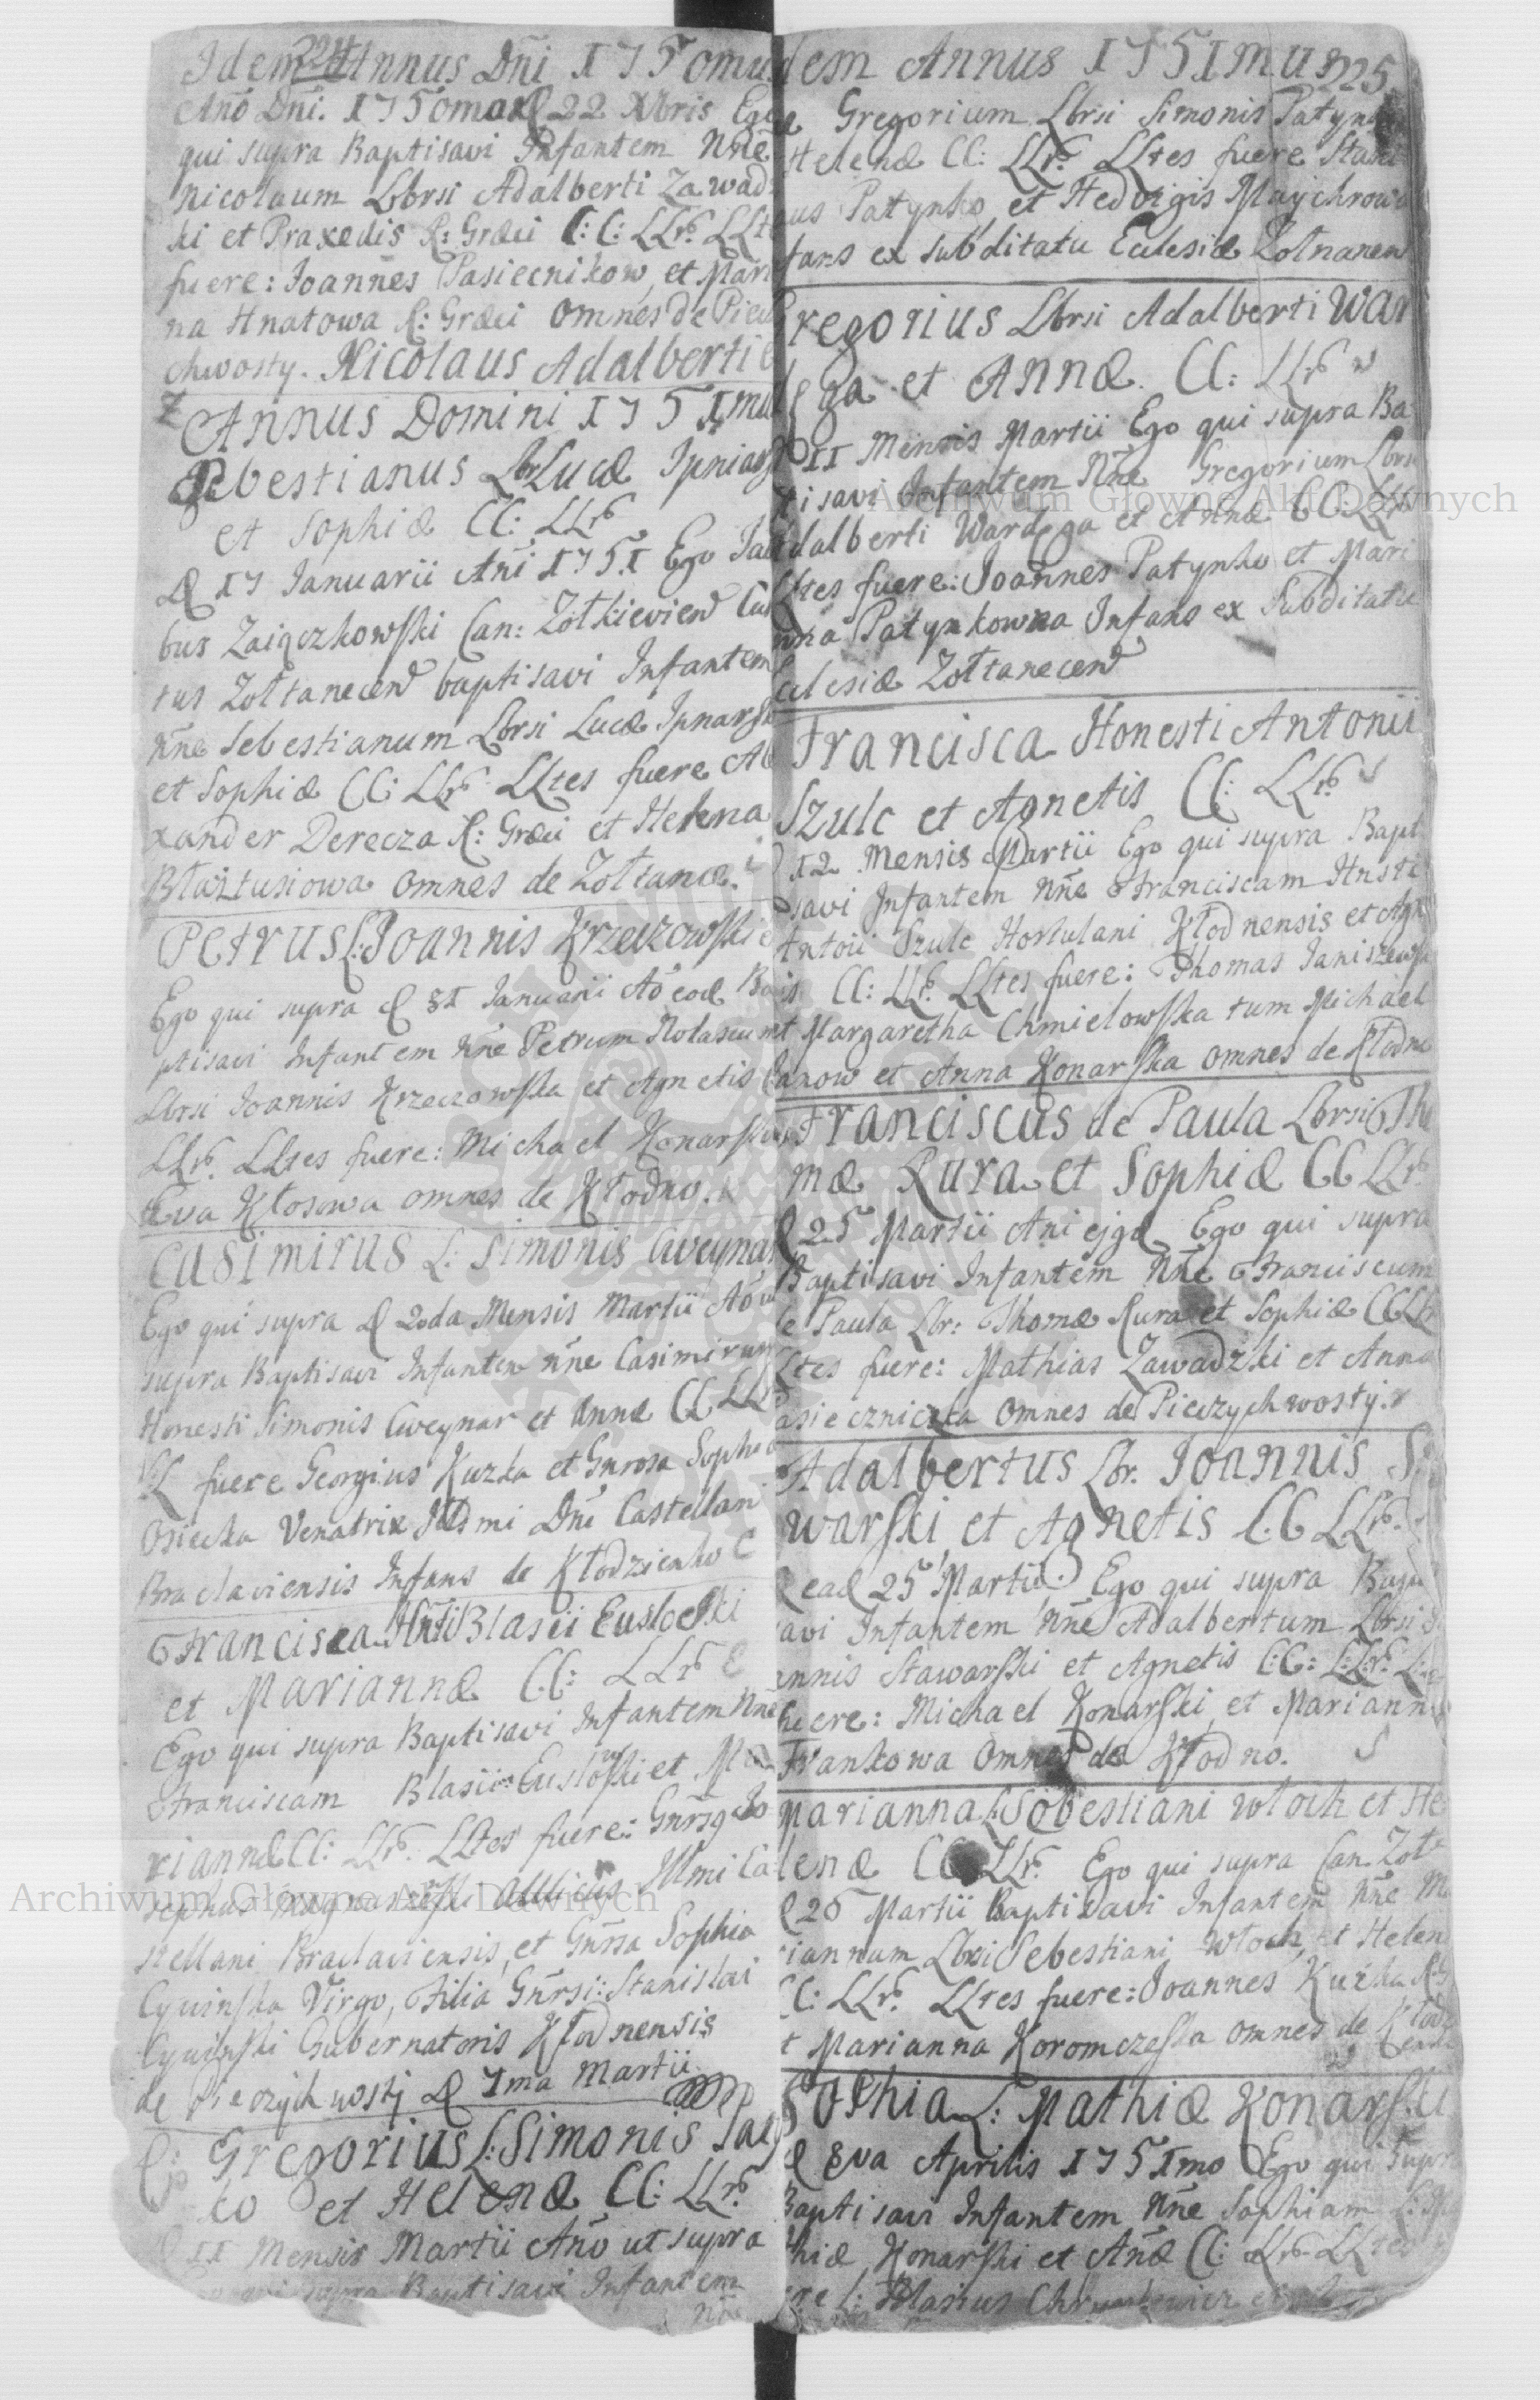 Idem Annus Dni 1750mus
324
Ano Dni. 1750mo d 22 Xbris Ego
qui supra Baptisavi Infantem Nne
Nicolaum Lbrsi Adalberti Zawadz
ki et Praxedis R: Græci C:C: LLr LLtes
fuere: Joannes Pasiecnikow, et Mari
na Hnatowa R: Græci Omnes de Piecu
chwosty. Nicolaus Adalberti
Annus Domini 1751mus
Sebestianus Lbr Lucæ Ipniarski
et Sophiæ CC: LLr
d 17 Januarii Ani 1751 Ego Jaco
bus Zaiączkowski Can: Zołkievien Cura
tus Zołtanecen baptisavi Infantem
Nne Sebestianum Lbrsi Lucæ Ipnarski
et Sophiæ CC: LLr LLtes fuere Ale
xander Derecza R: Græci et Helena
Błaztusiowa omnes de Zołtance.
Petrus L: Joannis Krzeczowski
Ego qui supra d 31 Januarii Ao eod Ba
ptisavi Infantem Nne Petrum Nolascum
Lbrsi Joannis Krzeczowska et Agnetis
LLr LLtes fuere: Michael Konarski
Eva Kłosowa omnes de Kłodno.
Casimirus L: Simonis Cweynar
Ego qui supra d 2da Mensis Martii Ao ut
supra Baptisavi Infantem Nne Casimirum
Honesti Simonis Cweynar et Annæ CC LLr
LL fuere Georgius Kuzka et Gnrosa Sophia
Osiecka Venatrix Illsmi Dni Castellani
Braclaviensis Infans de Kłodzienko
Francisca Hnsti Blasii Euslocski
et Mariannæ CC: LLr
Ego qui supra Baptisavi Infantem Nne
Franciscam Blasii et Ma
riannæ CC: LLr. LLtes fuere: Gnrsq Jo
sephus Aullicus Illmi Ca
stellani Braclaviensis, et Gnrsa Sophia
Cywinska Virgo, Filia Gnrsi: Stanislai
Cywinski Gubernatoris Kłodnensis
de Pieczychwosty d 7ma Martii
Gregorius L: Simonis Paty
ko et Helenæ CC: LLr
d 11 Mensis Martii Ano ut supra
Ego qui supra Baptisavi Infantem
Nne
Idem Annus 1751mus
325
Gregorium Lbrsi Simonis Patynko
Helenæ CC: LLr. LLtes fuere Stani
aus Patynko, et Hedvigis Maychrowa
fans ex subditatu Ecclesiæ Zołtnanen
Gregorius Lbrsi Adalberti War
dęga et Annæ. CC: LLr
d 11 Mensis Martii Ego qui supra Ba
tisavi Infantem Nne Gregorium Lbrsi
Adalberti Wardęga et Annæ CC: LLr
LLtes fuere: Joannes Patynko et Mari
nna Patynkowna Infans ex Subditatu
Ecclesiæ Zołtanecen
Francisca Honesti Antonii
Szulc et Agnetis CC: LLr
d 12 Mensis Martii Ego qui supra Bapt
savi Infantem Nne Franciscam Hnsti
Antoii Szulc Hortulani Kłodnensis et Agn
is CC: LLr. LLtes fuere: Thomas Janiszewski
et Margaretha Chmielowska tum Michael
Janow et Anna Konarska omnes de Kłodno
Franciscus de Paula Lbrsi Tho
mæ Rura et Sophiæ CC LLr
d 25 Martii Ani ejgd Ego qui supra
Baptisavi Infantem Nne Franciscum
de Paula Lbr: Thomæ Rura et Sophiæ CC LLr
LLtes fuere: Mathias Zawadzki et Anna
Pasieczniczka Omnes de Pieczychwosty.
Adalbertus Lbr. Joannis S
warski et Agnetis C.C LLr.
d ead 25 Martii. Ego qui supra Bapti
savi Infantem Nne Adalbertum Lbrsi Jo
annis Stawarski et Agnetis C:C: L:Lr. L:
fuere: Michael Konarski et Mariann
Frankowa Omnes de Kłodno.
Marianna L: Sobestiani Włoch et He
lenæ CC LLr. Ego qui supra Can. Zoł
d 26 Martii Baptisavi Infantem Nne Ma
riannam Lbrsi Sebestiani Włoch, et Helen
CC: LLr. LLtes fuere: Joannes Kuzka R:G
et Marianna Koromczeska omnes de Kłod
Sophia L: Mathiæ Konarski
d 8va Aprilis 1751mo Ego qui supra
Baptisavi Infantem Nne Sophiam L: Ma
thiæ Konarski et Anæ CC: LLr LLtes
fuere L: Blasius